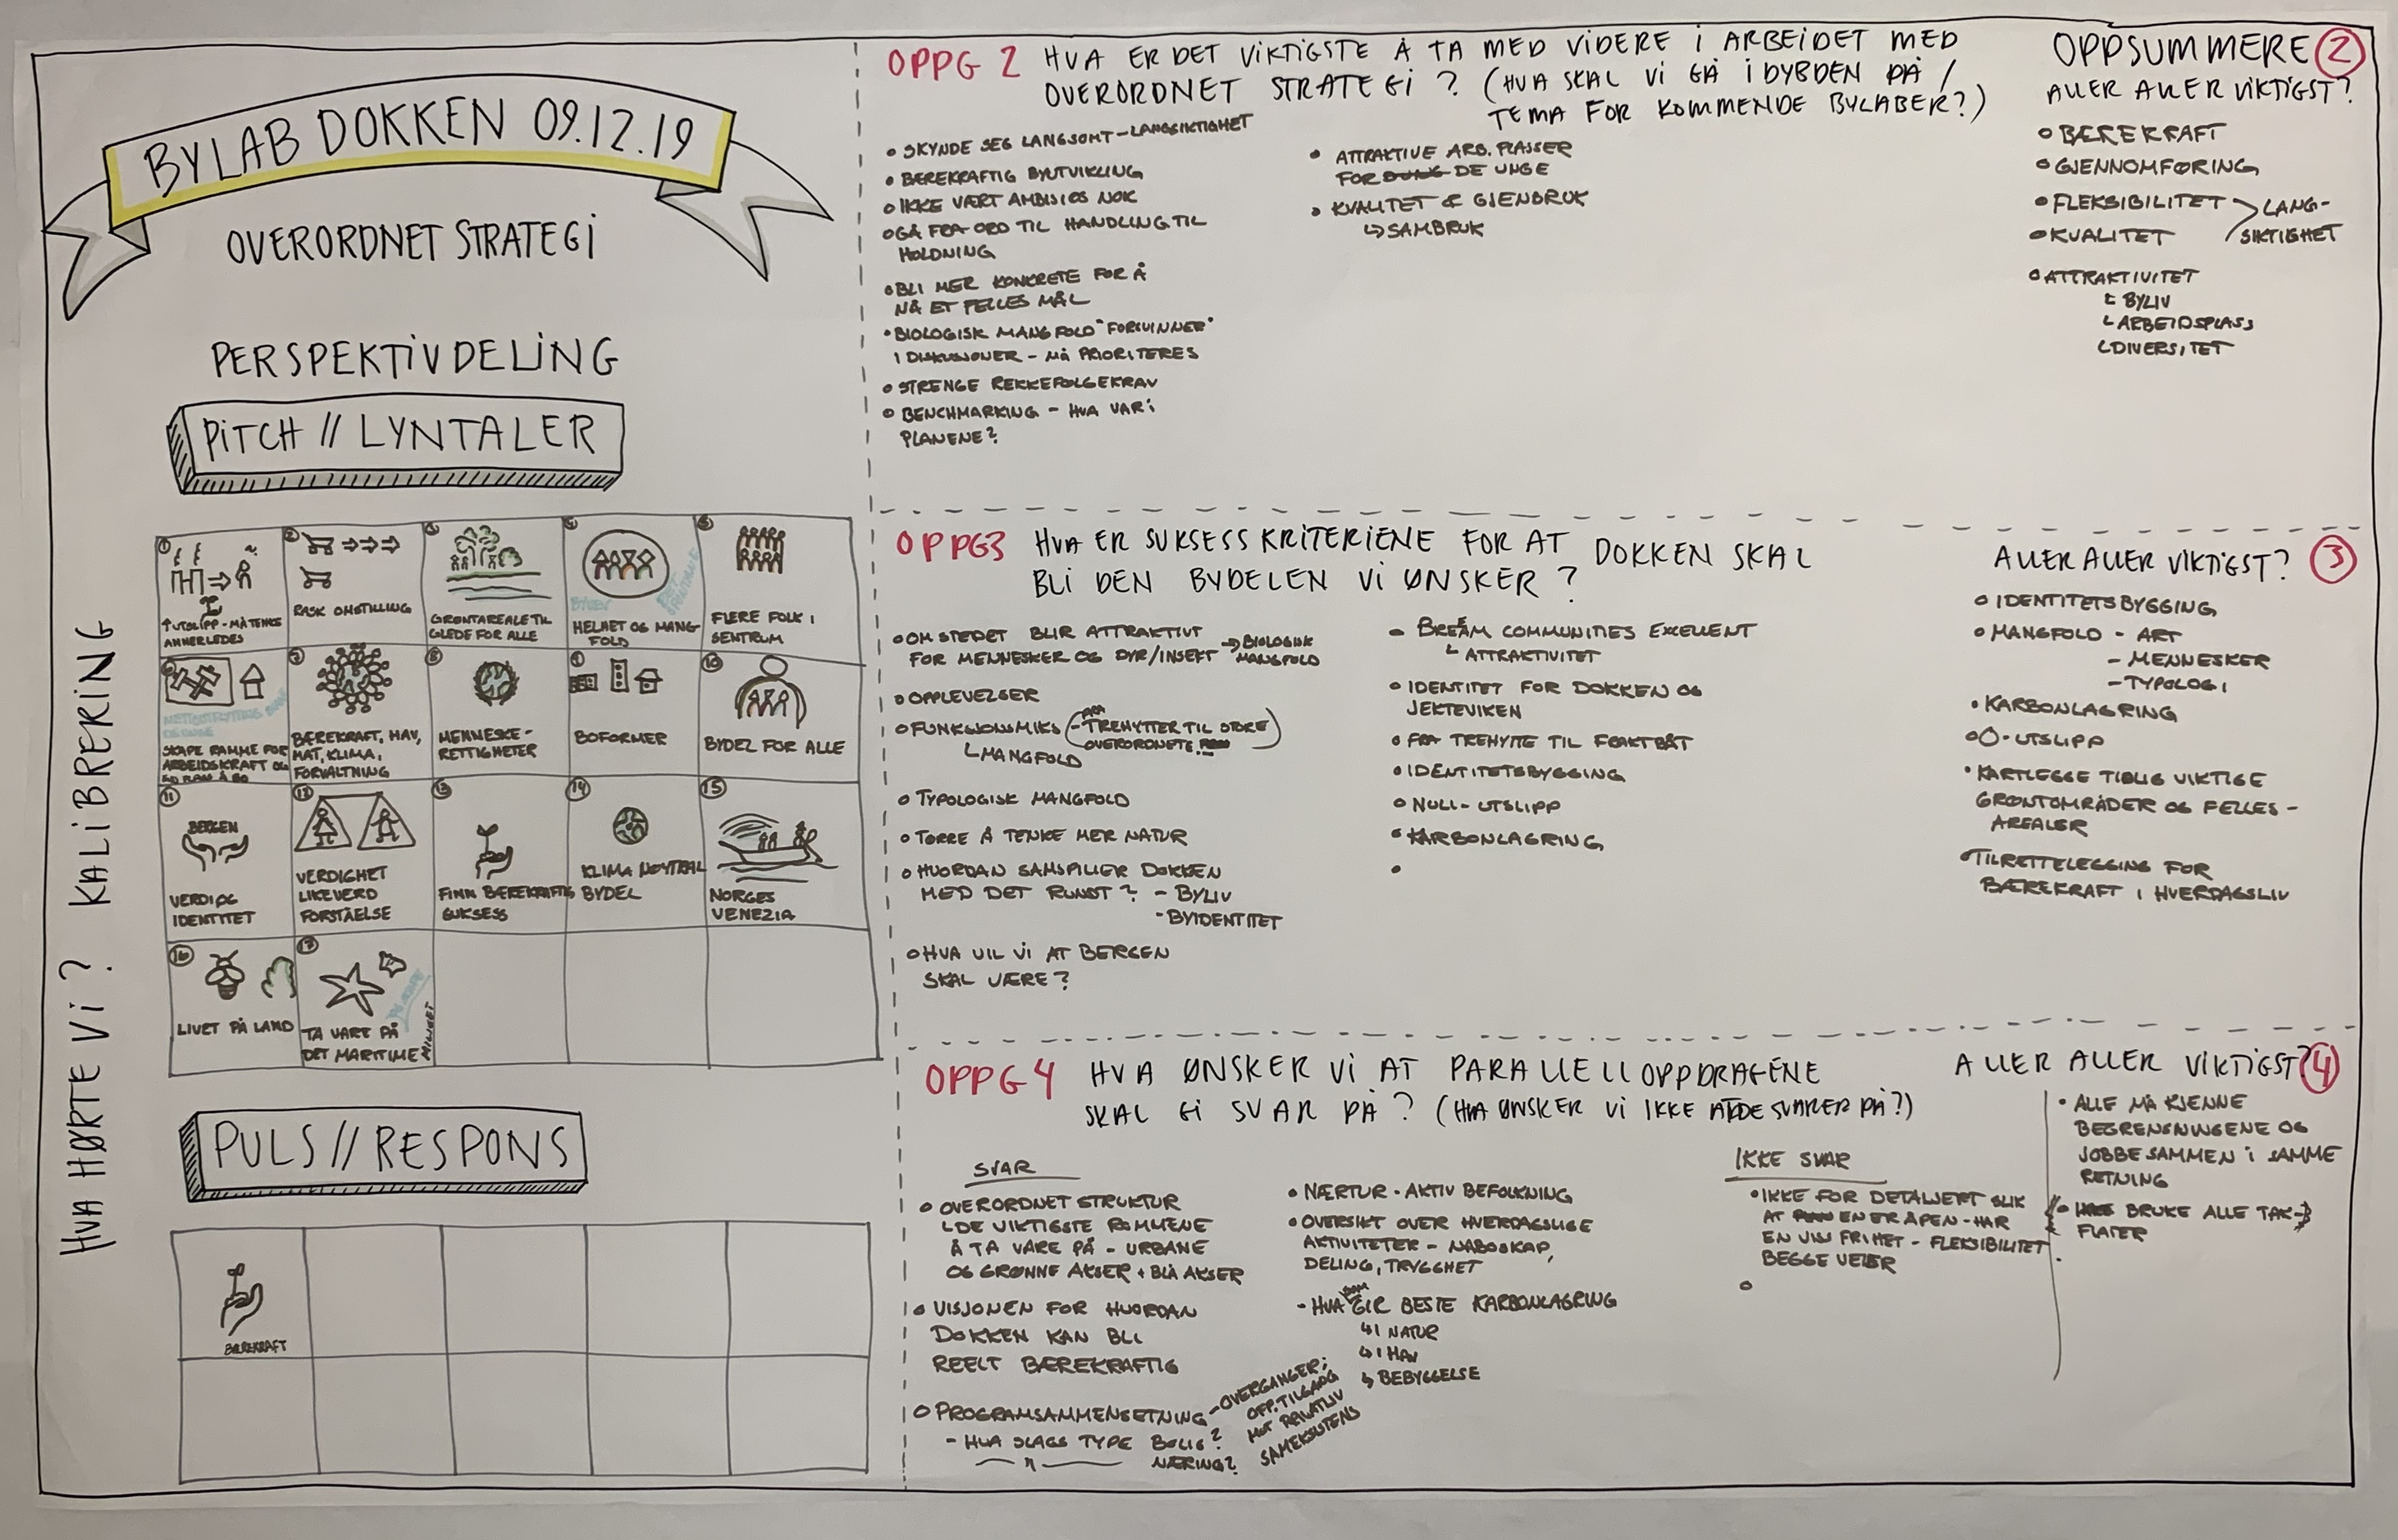 BYLAB DOKKEN 09.12.19
OVERORDNET STRATEGI
PERSPEKTIVDELING
PITCH // LYNTALER
HVA HØRTE VI? KALIBRERING
1
↑UTSLIPP - MÅ TENKE
ANNERLEDES
2
RASK OMSTILLING
3
GRØNTAREALE TIL
GLEDE FOR ALLE
4
BYLIV
HELHET OG MANG
FOLD
5
FLERE FOLK I
SENTRUM
6
SKAPE RAMME FOR
ARBEIDSKRAFT OG
7
BÆREKRAFT, HAV,
MAT, KLIMA,
FORVALTNING
8
MENNESKE-
RETTIGHETER
9
BOFORMER
10
BYDEL FOR ALLE
11
BERGEN
VERDI OG
IDENTITET
12
VERDIGHET
LIKEVERD
FORSTÅELSE
13
FINN BÆREKRAFTIG
SUKSESS
14
KLIMA NØYTRAL
BYDEL
15
NORGES
VENEZIA
16
LIVET PÅ LAND
17
TA VARE PÅ
DET MARITIME
MILJØET
PULS // RESPONS
BÆREKRAFT
OPPG 2 HVA ER DET VIKTIGSTE Å TA MED VIDERE I ARBEIDET MED
OVERORDNET STRATEGI? (HVA SKAL VI GÅ I DYBDEN PÅ /
TEMA FOR KOMMENDE BYLABER?)
• SKYNDE SEG LANGSOMT - LANGSIKTIGHET
• BÆREKRAFTIG BYUTVIKLING
• IKKE VÆRT AMBISIØS NOK
• GÅ FRA ORD TIL HANDLING TIL
HOLDNING
• BLI MER KONKRETE FOR Å
NÅ ET FELLES MÅL
• BIOLOGISK MANGFOLD "FORSVINNER"
I DISKUSJONER - MÅ PRIORITERES
• STRENGE REKKEFØLGEKRAV
• BENCHMARKING - HVA VAR I
PLANENE?
• ATTRAKTIVE ARB.PLASSER
FOR DE UNGE
• KVALITET & GJENBRUK
↳ SAMBRUK
OPPSUMMERE 2
ALLER ALLER VIKTIGST?
• BÆREKRAFT
• GJENNOMFØRING
• FLEKSIBILITET
• KVALITET
LANG-
SIKTIGHET
• ATTRAKTIVITET
↳ BYLIV
↳ ARBEIDSPLASS
↳ DIVERSITET
OPPG3 HVA ER SUKSESSKRITERIENE FOR AT DOKKEN SKAL
BLI DEN BYDELEN VI ØNSKER?
• OM STEDET BLIR ATTRAKTIVT
FOR MENNESKER OG DYR/INSEKT → BIOLOGISK
MANGFOLD
• OPPLEVELSER
• FUNKSJONSMIKS (- FRA TREHYTTER TIL STORE
OVERORDNETE)
↳ MANGFOLD
• TYPOLOGISK MANGFOLD
• TØRRE Å TENKE MER NATUR
• HVORDAN SAMSPILLER DOKKEN
MED DET RUNDT? - BYLIV
- BYIDENTITET
• HVA VIL VI AT BERGEN
SKAL VÆRE?
• BREEAM COMMUNITIES EXCELLENT
↳ ATTRAKTIVITET
• IDENTITET FOR DOKKEN OG
JEKTEVIKEN
• FRA TREHYTTE TIL FRAKTBÅT
• IDENTITETSBYGGING
• NULL-UTSLIPP
• KARBONLAGRING
ALLER ALLER VIKTIGST? 3
• IDENTITETSBYGGING
• MANGFOLD - ART
- MENNESKER
- TYPOLOGI
• KARBONLAGRING
• 0-UTSLIPP
• KARTLEGGE TIDLIG VIKTIGE
GRØNTOMRÅDER OG FELLES-
AREALER
• TILRETTELEGGING FOR
BÆREKRAFT I HVERDAGSLIV
OPPG 4 HVA ØNSKER VI AT PARALLELLOPPDRAGENE
SKAL GI SVAR PÅ? (HVA ØNSKER VI IKKE AT DE SVARER PÅ?)
SVAR
• OVERORDNET STRUKTUR
↳ DE VIKTIGSTE ROMMENE
Å TA VARE PÅ - URBANE
OG GRØNNE AKSER + BLÅ AKSER
• VISJONEN FOR HVORDAN
DOKKEN KAN BLI
REELT BÆREKRAFTIG
• PROGRAMSAMMENSETNING
- HVA SLAGS TYPE BOLIG?
— " — NÆRING?
- OVERGANGER;
OFF.TILGANG
MOT PRIVATLIV
SAMEKSISTENS
• NÆRTUR - AKTIV BEFOLKNING
• OVERSIKT OVER HVERDAGSLIGE
AKTIVITETER - NABOSKAP,
DELING, TRYGGHET
- HVA SOM GIR BESTE KARBONLAGRING
↳ I NATUR
↳ I HAV
↳ BEBYGGELSE
IKKE SVAR
• IKKE FOR DETALJERT SLIK
AT EN ER ÅPEN - HAR
EN VISS FRIHET - FLEKSIBILITET
BEGGE VEIER
ALLER ALLER VIKTIGST? 4
• ALLE MÅ KJENNE
BEGRENSNINGENE OG
JOBBE SAMMEN I SAMME
RETNING
• BRUKE ALLE TAK-
FLATER